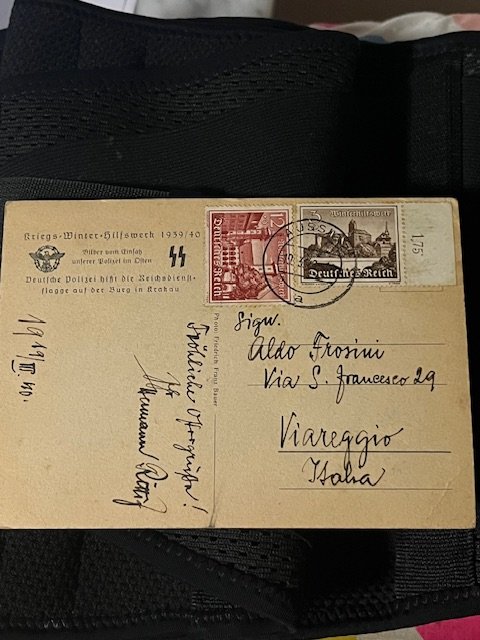 Kriegs-Winter-Hilfswerk 1939/40
Bilder vom Einsatz
unserer Polizei im Osten
Deutsche Polizei hißt die Reichsdienst-
flagge auf der Burg in Krakau
Photo: Friedrich Franz Bauer
19 19/III 40.
Fröhliche Ostergrüße!
Ihr
Hermann
12
Deutsches Reich
3
Winterhilfswerk
Deutsches Reich
1,75
AUSS
a
Sign.
Aldo Frosini
Via S. Francesco 29
Viareggio
Italia